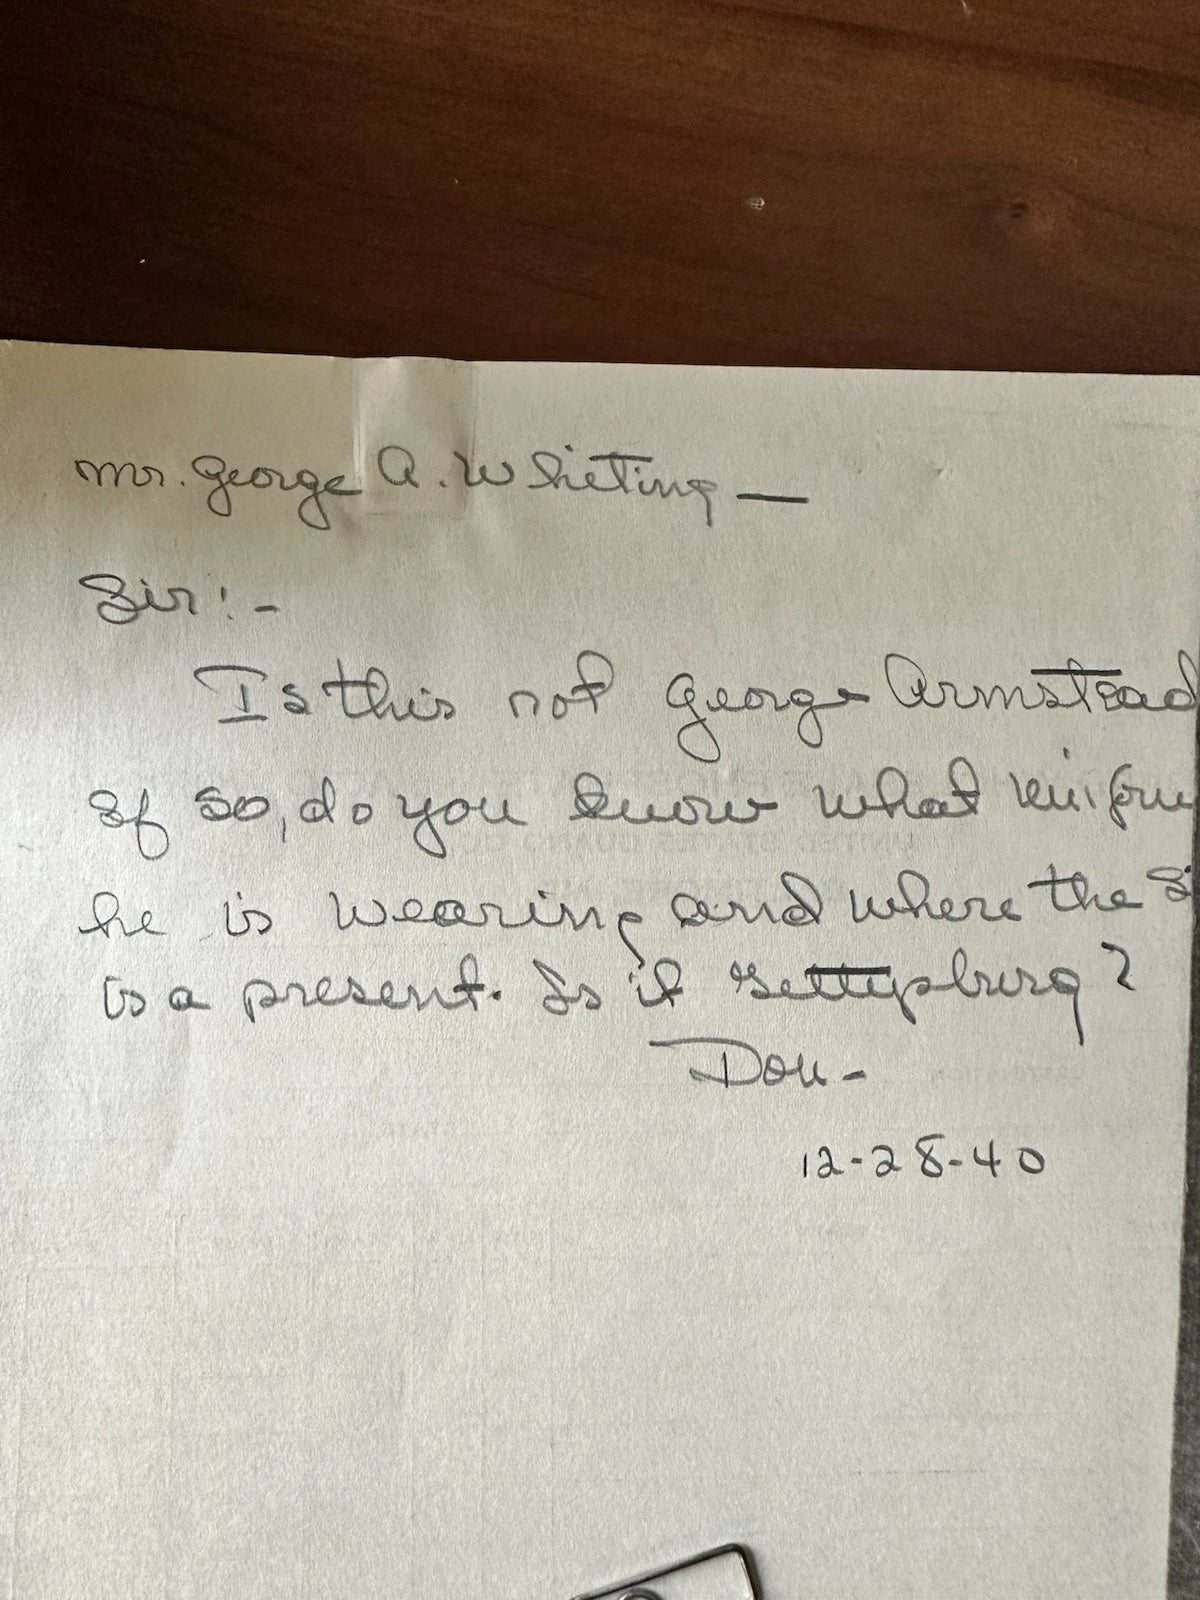 Mr. George A. Whieting —
Sir: -
Is this not George Armstead
If so, do you know what uniform
he is wearing and where the S
is a present. Is it Gettysburg?
Don -
12-28-40
UNITED STATES